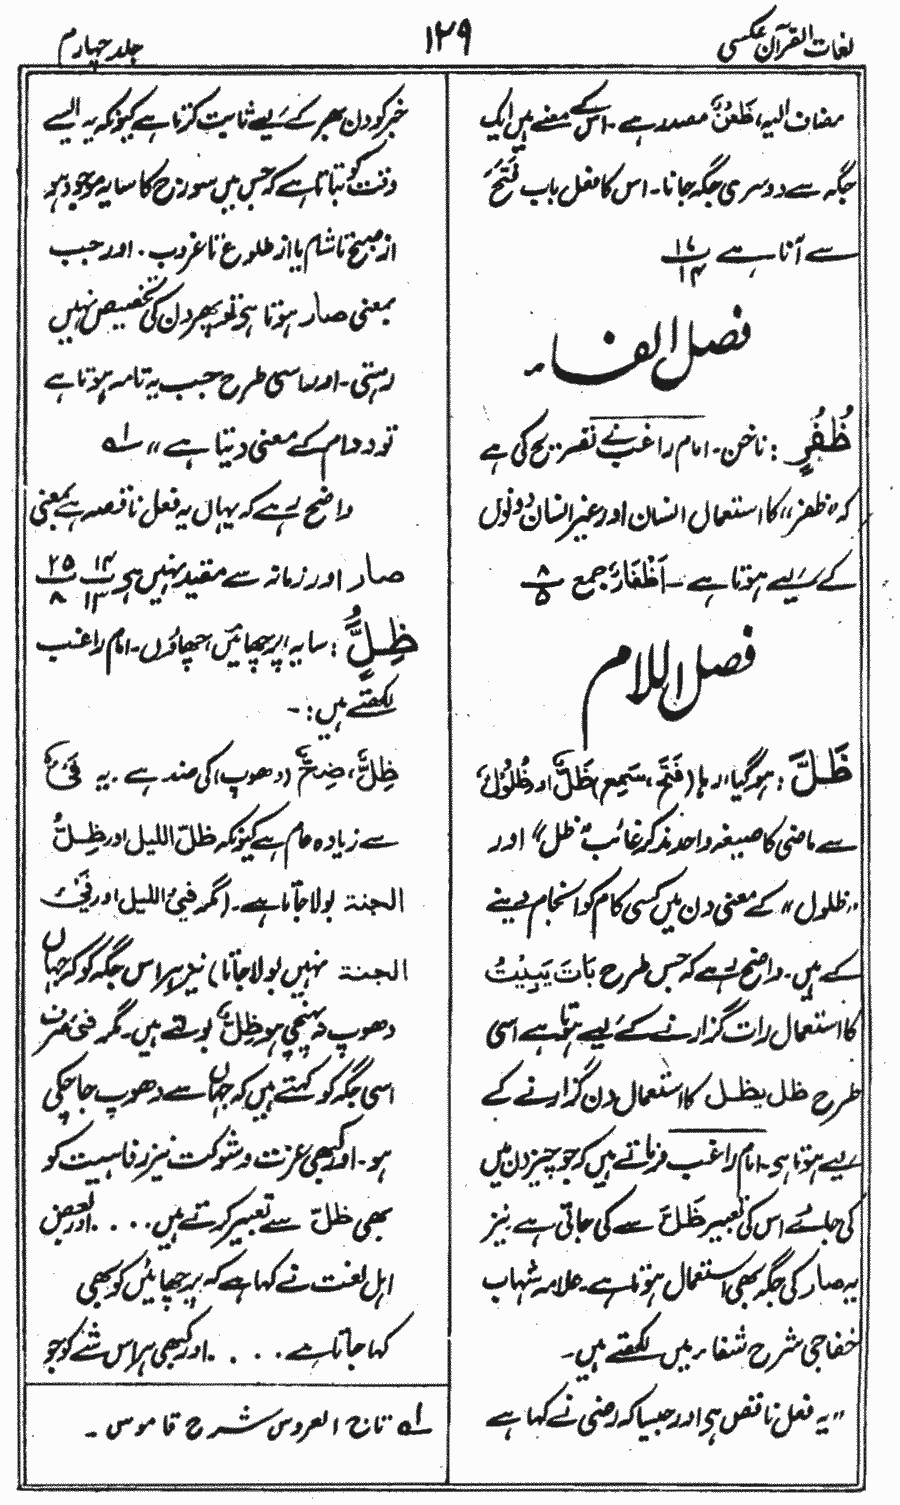 لغات القرآن عکسی
۱۲۹
جلد چہارم
مضاف الیہ، ظَعْنٌ مصدر ہے۔ اس کے معنے ہیں ایک
جگہ سے دوسری جگہ جانا۔ اس کا فعل باب فَتَحَ
سے آتا ہے ۱۴ ۱۷
فصل الفاء
ظُفُرٍ : ناخن۔ امام راغب نے تصریح کی ہے
کہ "ظفر" کا استعمال انسان اور غیر انسان دونوں
کے لیے ہوتا ہے ۔ اَظْفَارٌ جمع ۸ ۵
فصل اللام
ظَلَّ : ہو گیا، رہا (فَتَحَ، سَمِعَ) ظَلٌّ اور ظُلُوْلٌ
سے ماضی کا صیغہ واحد مذکر غائب "ظل" اور
"ظلول" کے معنی دن میں کسی کام کو انجام دینے
کے ہیں۔ واضح رہے کہ جس طرح بَاتَ یَبِیْتُ
کا استعمال رات گزارنے کے لیے ہوتا ہے اسی
طرح ظل یظل کا استعمال دن گزارنے کے
لیے ہوتا ہے۔ امام راغب فرماتے ہیں کہ جو چیز دن میں
کی جائے اس کی تعبیر ظَلَّ سے کی جاتی ہے نیز
یہ صار کی جگہ بھی استعمال ہوتا ہے۔ علامہ شہاب
خفاجی شرح شفاء میں لکھتے ہیں۔
"یہ فعل ناقص ہے اور جیسا کہ رضی نے کہا ہے
خبر کو دن بھر کے لیے ثابت کرتا ہے کیونکہ یہ ایسے
وقت کو بتاتا ہے کہ جس میں سورج کا سایہ موجود ہو
از صبح تا شام یا از طلوع تا غروب۔ اور جب
بمعنی صار ہوتا ہے تو پھر دن کی تخصیص نہیں
رہتی۔ اور اسی طرح جب یہ تامہ ہوتا ہے
تو دوام کے معنی دیتا ہے" لہ
واضح رہے کہ یہاں یہ فعل ناقصہ ہے بمعنی
صار اور زمانہ سے مقید نہیں ہے ۱۴ ۱۳ ۲۵ ۸
ظِلٍّ : سایہ، پرچھائیں، چھاؤں۔ امام راغب
لکھتے ہیں :-
ظِلٌّ، ضِحٌّ (دھوپ) کی ضد ہے ۔ یہ فَیْءٌ
سے زیادہ عام ہے کیونکہ ظلّ اللیل اور ظِلُّ
الجنۃ بولا جاتا ہے۔ (مگر فیئ اللیل اور فَیْءُ
الجنۃ نہیں بولا جاتا) نیز ہر اس جگہ کو کہ جہاں
دھوپ نہ پہنچی ہو ظِلٌّ بولتے ہیں۔ مگر فئ صرف
اسی جگہ کو کہتے ہیں کہ جہاں سے دھوپ جا چکی
ہو۔ اور کبھی عزت و شوکت نیز رفاہیت کو
بھی ظلّ سے تعبیر کرتے ہیں.... اور بعض
اہل لغت نے کہا ہے کہ پرچھائیں کو بھی
کہا جاتا ہے .... اور کبھی ہر اس شے کو جو
لہ تاج العروس شرح قاموس ۔